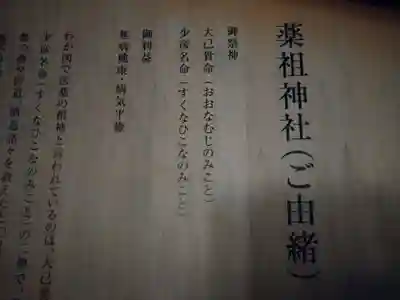 薬祖神社(ご由緒)
御祭神
大己貴命(おおなむじのみこと)
少彦名命(すくなひこなのみこと)
御利益
無病健康・病気平癒
わが国で医薬の祖神と言われているのは、大己
少彦名命(すくなひこなのみこと)の二神で